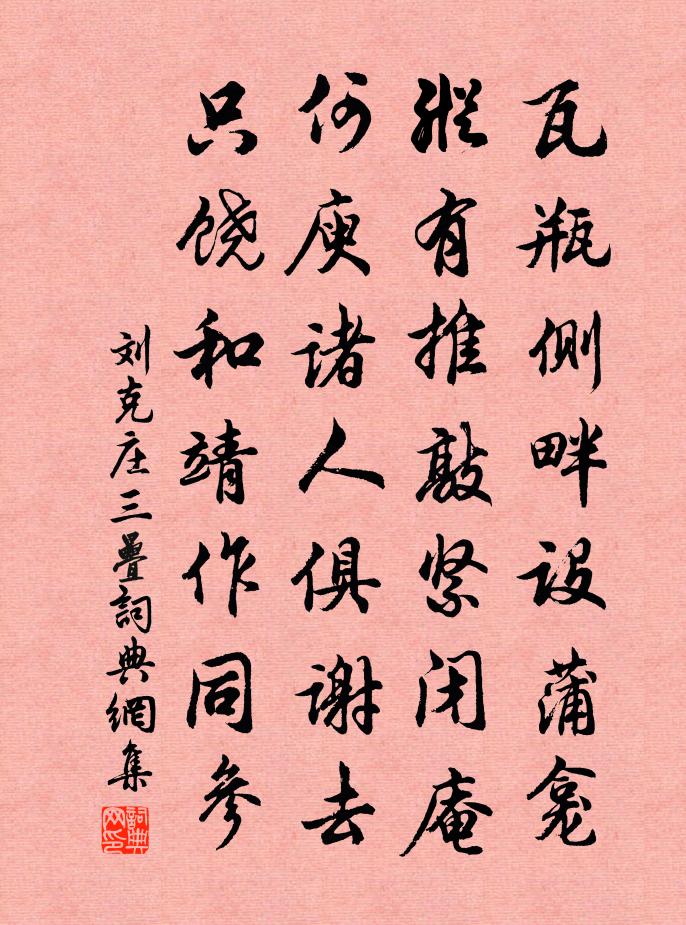 瓦瓶侧畔设蒲龛
纵有推敲紧闭庵
何庾诸人俱谢去
只饶和靖作同参
刘克庄三叠詞典網集
詞典网印